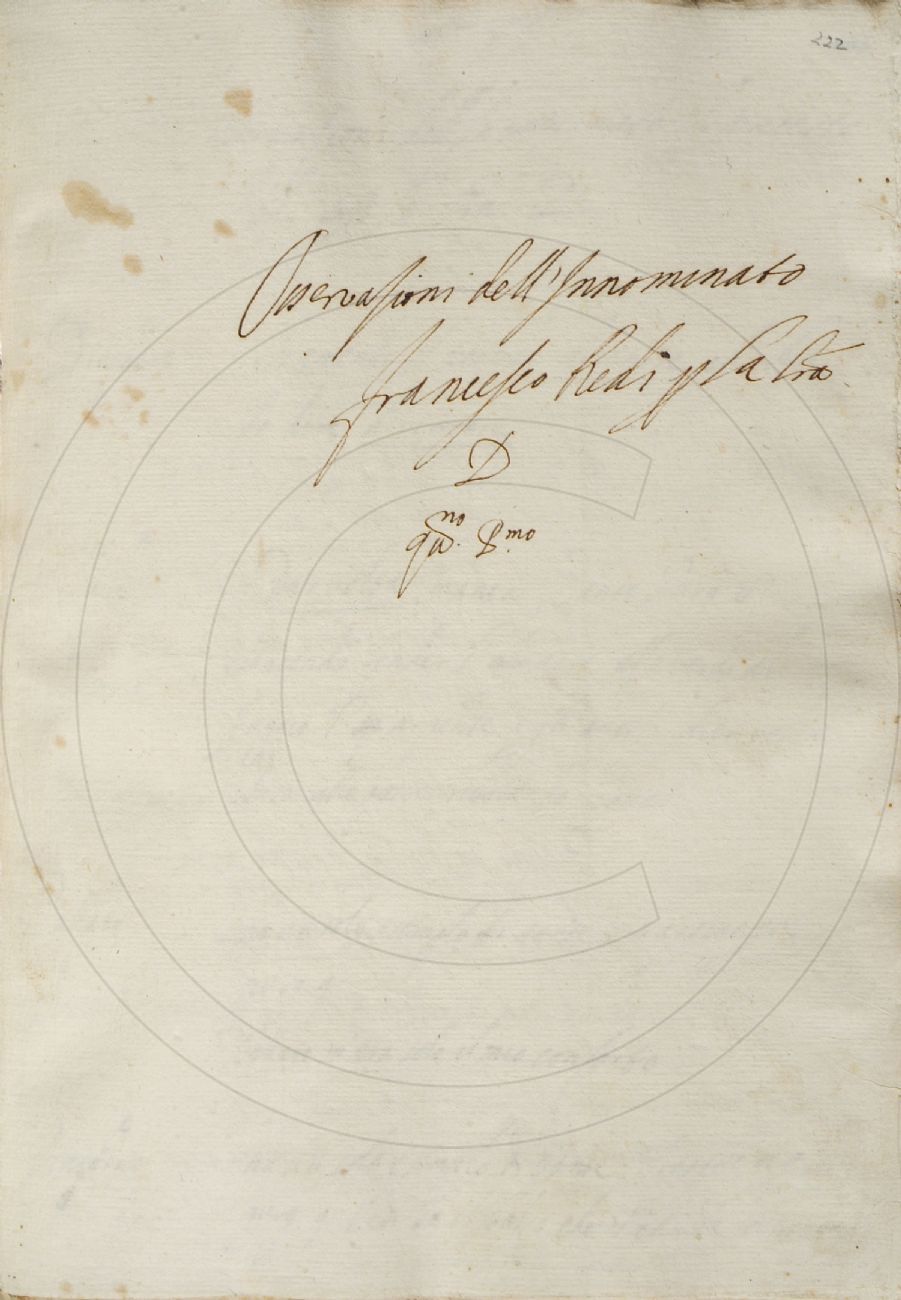 222
Osservazioni dell'Innominato
Francesco Redi p la lra
D
qũno. Pmo